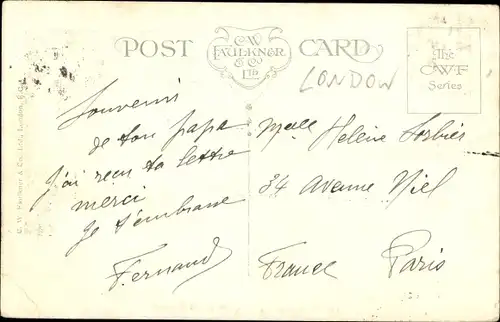 POST
C.W.
FAULKNER
& Co
Ltd.
CARD
The
C.W.F
Series
LONDOW
C. W. Faulkner & Co. Ltd., London, E.C.
Souvenir
de ton papa
j'ai reçu ta lettre
merci
je t'embrasse
Fernand
Melle Helene
34 Avenue Niel
France Paris